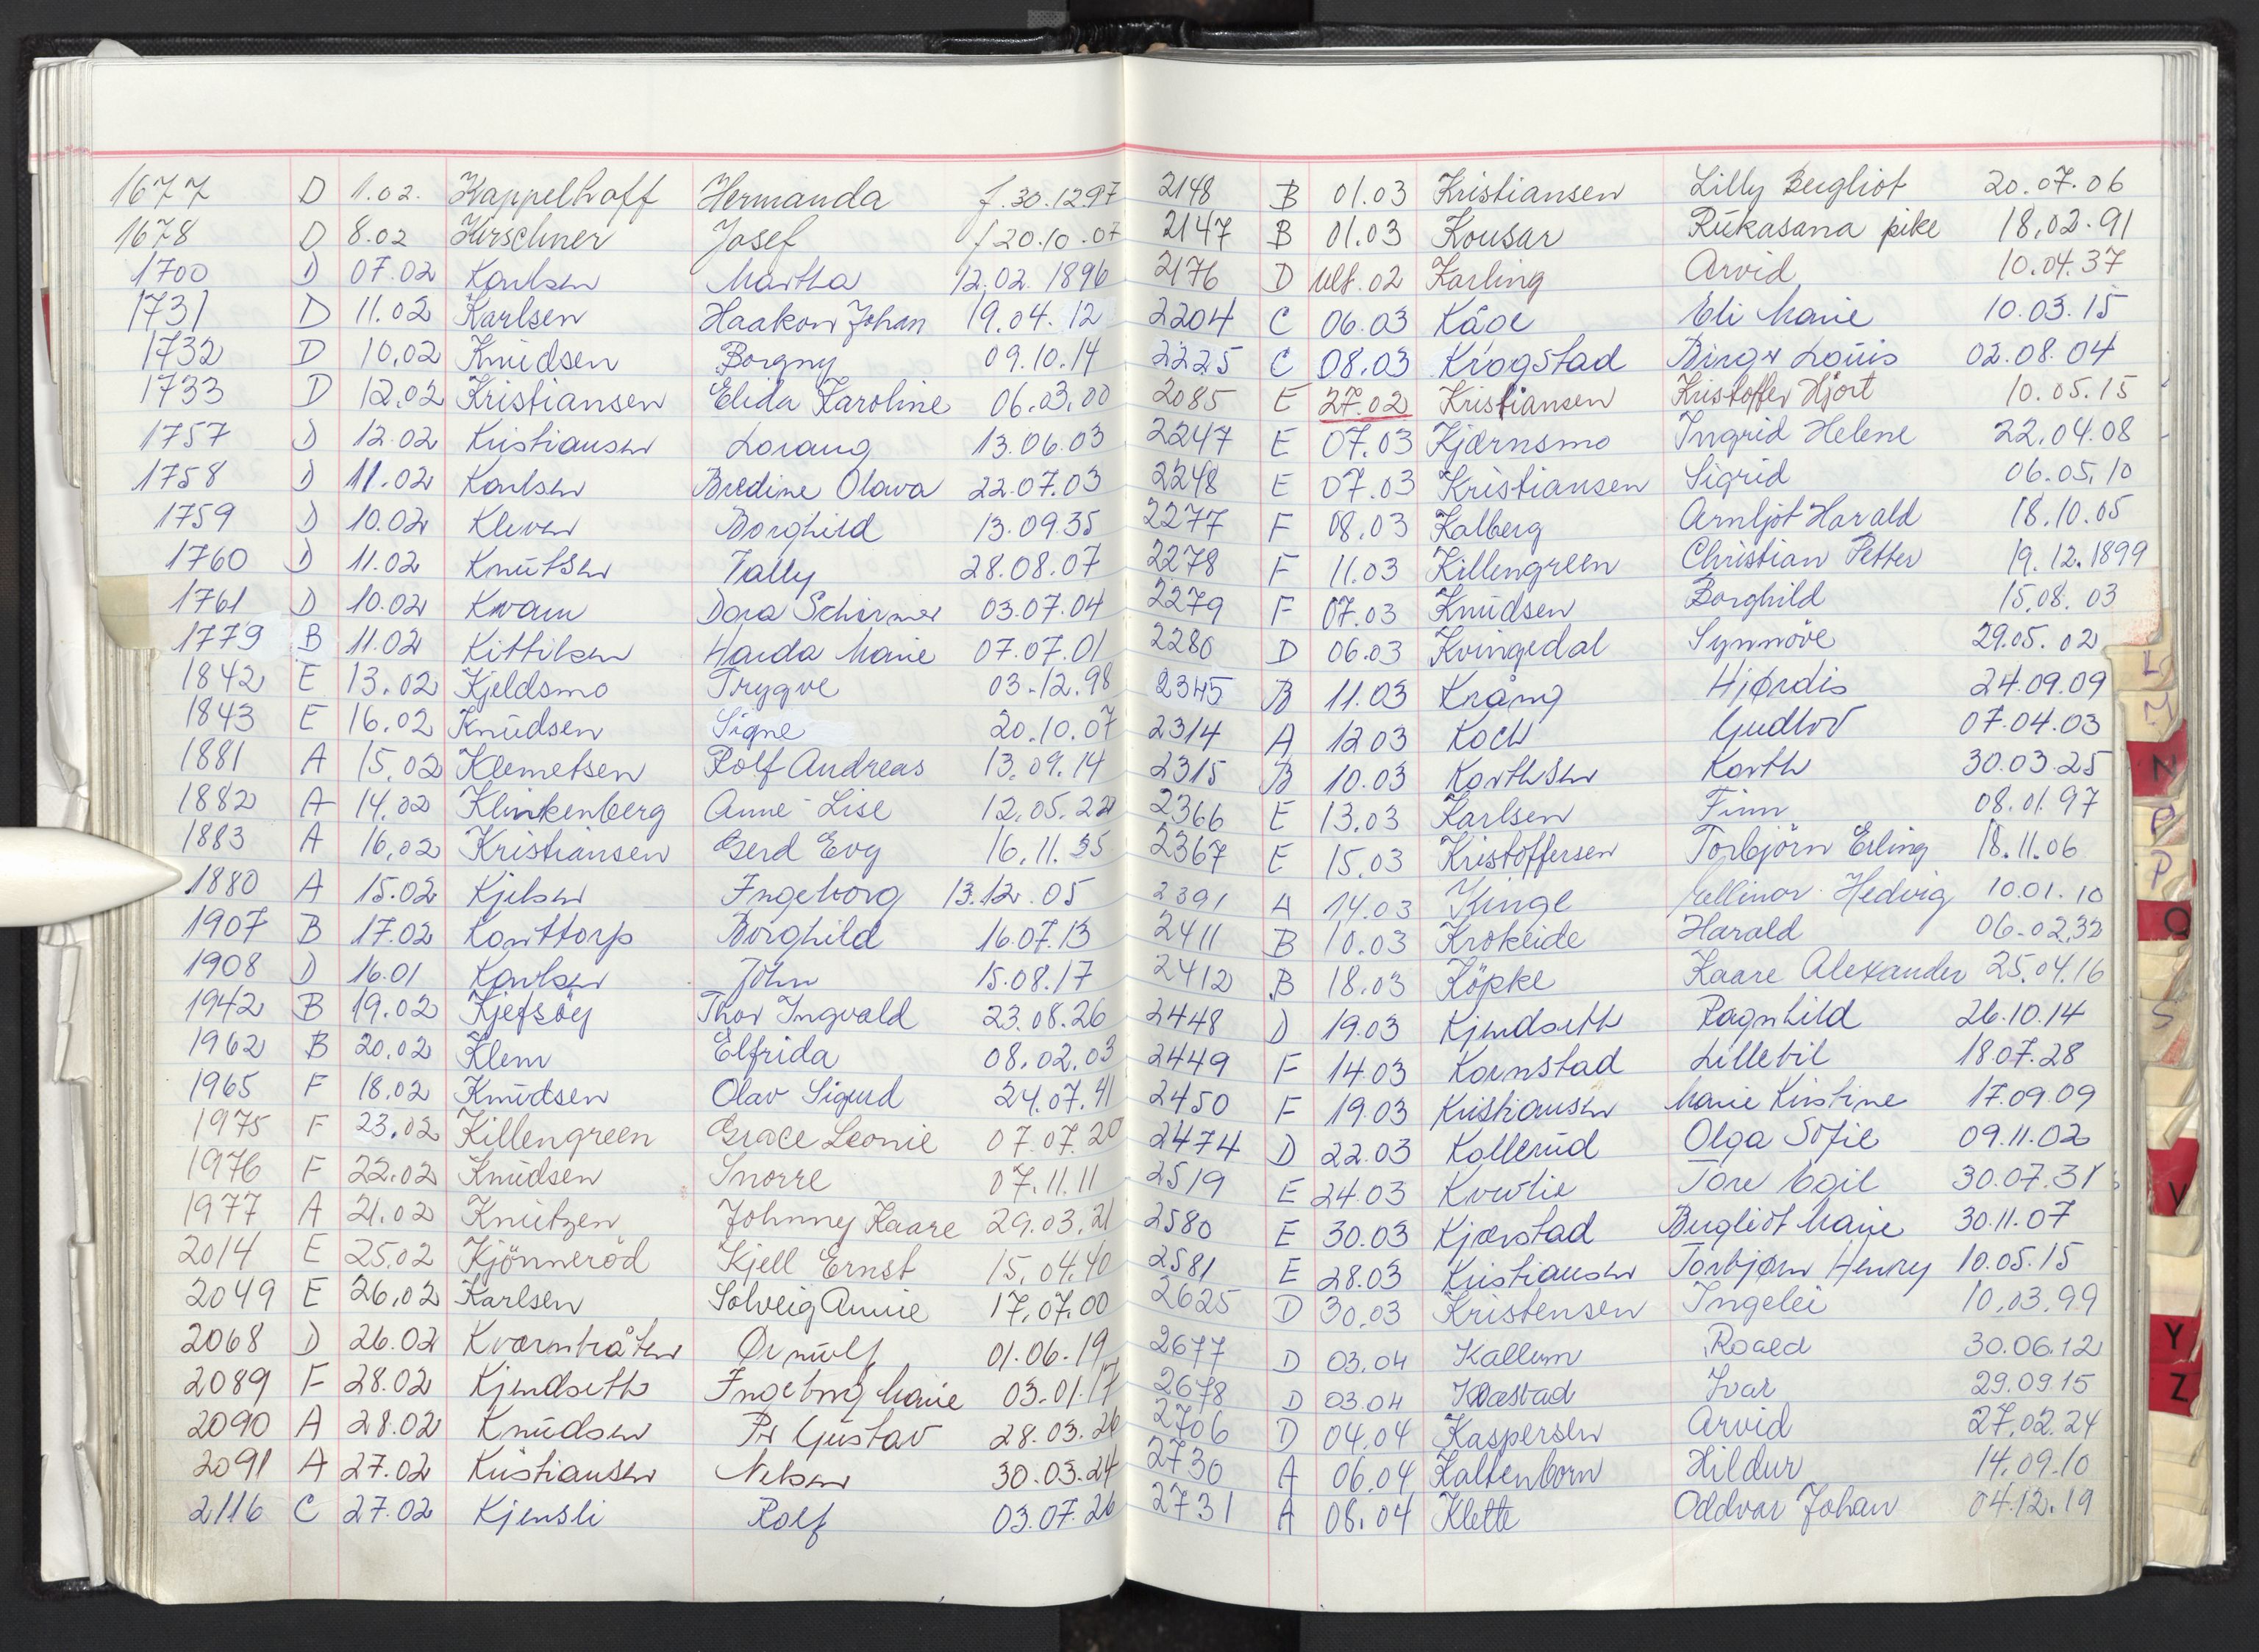 1677 D 1.02. Kappelhoff Hermanda f.30.1297
1678 D 8.02 Kirschner Josef f20.10.07
1700 D 07.02 Karlsen Martha 12.02.1896
1731 D 11.02 Karlsen Haakon Johan 19.04.12
1732 D 10.02 Knudsen Borgny 09.10.14
1733 D 12.02 Kristiansen Elida Karoline 06.03.00
1757 D 12.02 Kristiansen Lorang 13.06.03
1758 D 11.02 Karlsen Bredine Olava 22.07.03
1759 D 10.02 Kleven Borghild 13.09.35
1760 D 11.02 Knutsen Vally 28.08.07
1761 D 10.02 Kvam Dora Schirmer 03.07.04
1779 B 11.02 Kittilsen Harda Marie 07.07.01
1842 E 13.02 Kjeldsmo Trygve 03.12.98
1843 E 16.02 Knudsen Signe 20.10.07
1881 A 15.02 Klemetsen Rolf Andreas 13.09.14
1882 A 14.02 Klinkenberg Anne-Lise 12.05.22
1883 A 16.02 Kristiansen Gerd Evy 16.11.35
1880 A 15.02 Kjelsen Ingeborg 13.12.05
1907 B 17.02 Konttorp Borghild 16.07.13
1908 D 16.01 Karlsen John 15.08.17
1942 B 19.02 Kjefsøy Thor Ingvald 23.08.26
1962 B 20.02 Klem Elfrida 08.02.03
1965 F 18.02 Knudsen Olav Sigurd 24.07.41
1975 F 23.02 Killengreen Grace Leonie 07.07.20
1976 F 22.02 Knudsen Snorre 07.11.11
1977 A 21.02 Knutzen Johnny Kaare 29.03.21
2014 E 25.02 Kjönneröd Kjell Ernst 15.04.40
2049 E 26.02 Karlsen Solveig Annie 17.07.00
2068 D 26.02 Kværnbråten Ørnulf 01.06.19
2089 F 28.02 Kjendseth Ingeborg Marie 03.01.17
2090 A 28.02 Knudsen Per Gustav 28.03.26
2091 A 27.02 Kristiansen Nelsen 30.03.24
2116 C 27.02 Kjensli Rolf 03.07.26
2148 B 01.03 Kristiansen Lilly Bergliot 20.07.06
2147 B 01.03 Kousar Rukasana pike 18.02.91
2176 D ult.02 Karling Arvid 10.04.37
2204 C 06.03 Kåge Eli Marie 10.03.15
2225 C 08.03 Krogstad Birger Louis 02.08.04
2085 E 27.02 Kristiansen Kristoffer Hjort 10.05.15
2247 E 07.03 Kjærnsmo Ingrid Helene 22.04.08
2248 E 07.03 Kristiansen Sigrid 06.05.10
2277 F 08.03 Kalberg Arnljot Harald 18.10.05
2278 F 11.03 Killengreen Christian Petter 19.12.1899
2279 F 07.03 Knudsen Borghild 15.08.03
2280 D 06.03 Kvingedal Synnöve 29.05.02
2345 B 11.03 Krång Hjørdis 24.09.09
2314 A 12 03 Koch Gudlov 07.04.03
2315 B 10.03 Karthsen Karth 30.03.25
2366 E 13.03 Karlsen Finn 08.01.97
2367 E 15.03 Kristoffersen Torbjörn Erling 18.11.06
2391 A 14.03 Kinge Ellinor Hedvig 10.01.10
2411 B 10.03 Krokeide Harald 06.02.32
2412 B 18.03 Köpke Kaare Alexander 25.04.16
2448 D 19.03 Kjendseth Ragnhild 26.10.14
2449 F 14.03 Kornstad Lillebil 18.07.28
2450 F 19.03 Kristiansen Marie Kirstine 17.09.09
2474 D 22.03 Kollerud Olga Sofie 09.11.02
2519 E 24.03 Kverlie Tore Egil 30.07.31
2580 E 30.03 Kjærstad Bergliot Marie 30.11.07
2581 E 28.03 Kristiansen Torbjørn Henry 10.05.15
2625 D 30.03 Kristensen Ingelei 10.03.99
2677 D 03.04 Kallum Roald 30.06.12
2678 D 03.04 Kvæstad Ivar 29.09.15
2706 D 04.04 Kaspersen Arvid 27.02.24
2730 A 06.04 Kaltenborn Hildur 14.09.10
2731 A 08.04 Klette Oddvar Johan 04.12.19
L
N
P
P
Q
S
V
Y
Z